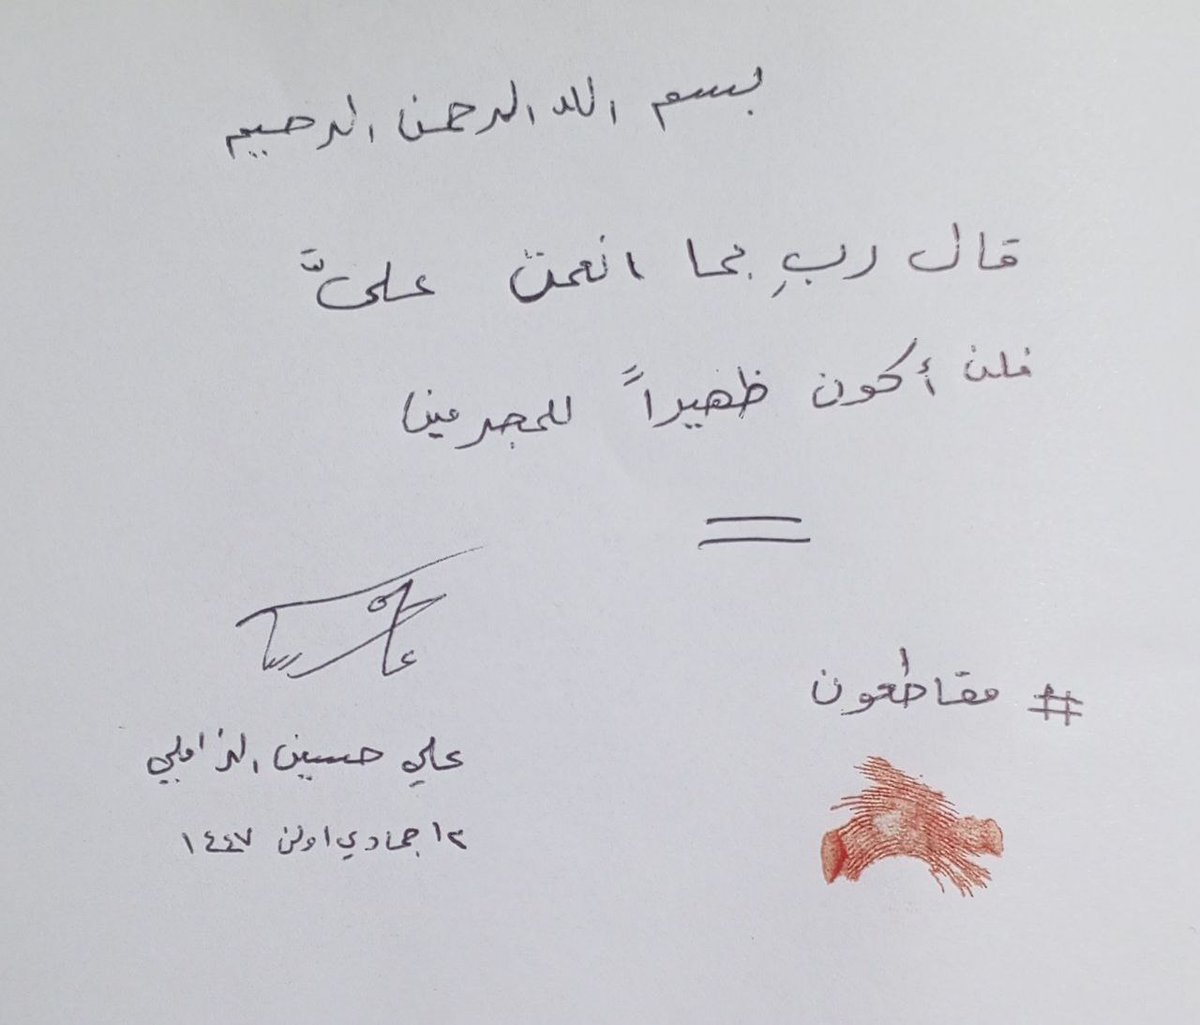 بسم الله الرحمن الرحيم
قال ربِ بما انعمت عليَّ
فلن أكون ظهيراً للمجرمين
# مقاطعون
علي حسين الزاملي
١٢ جمادي اولى ١٤٤٧